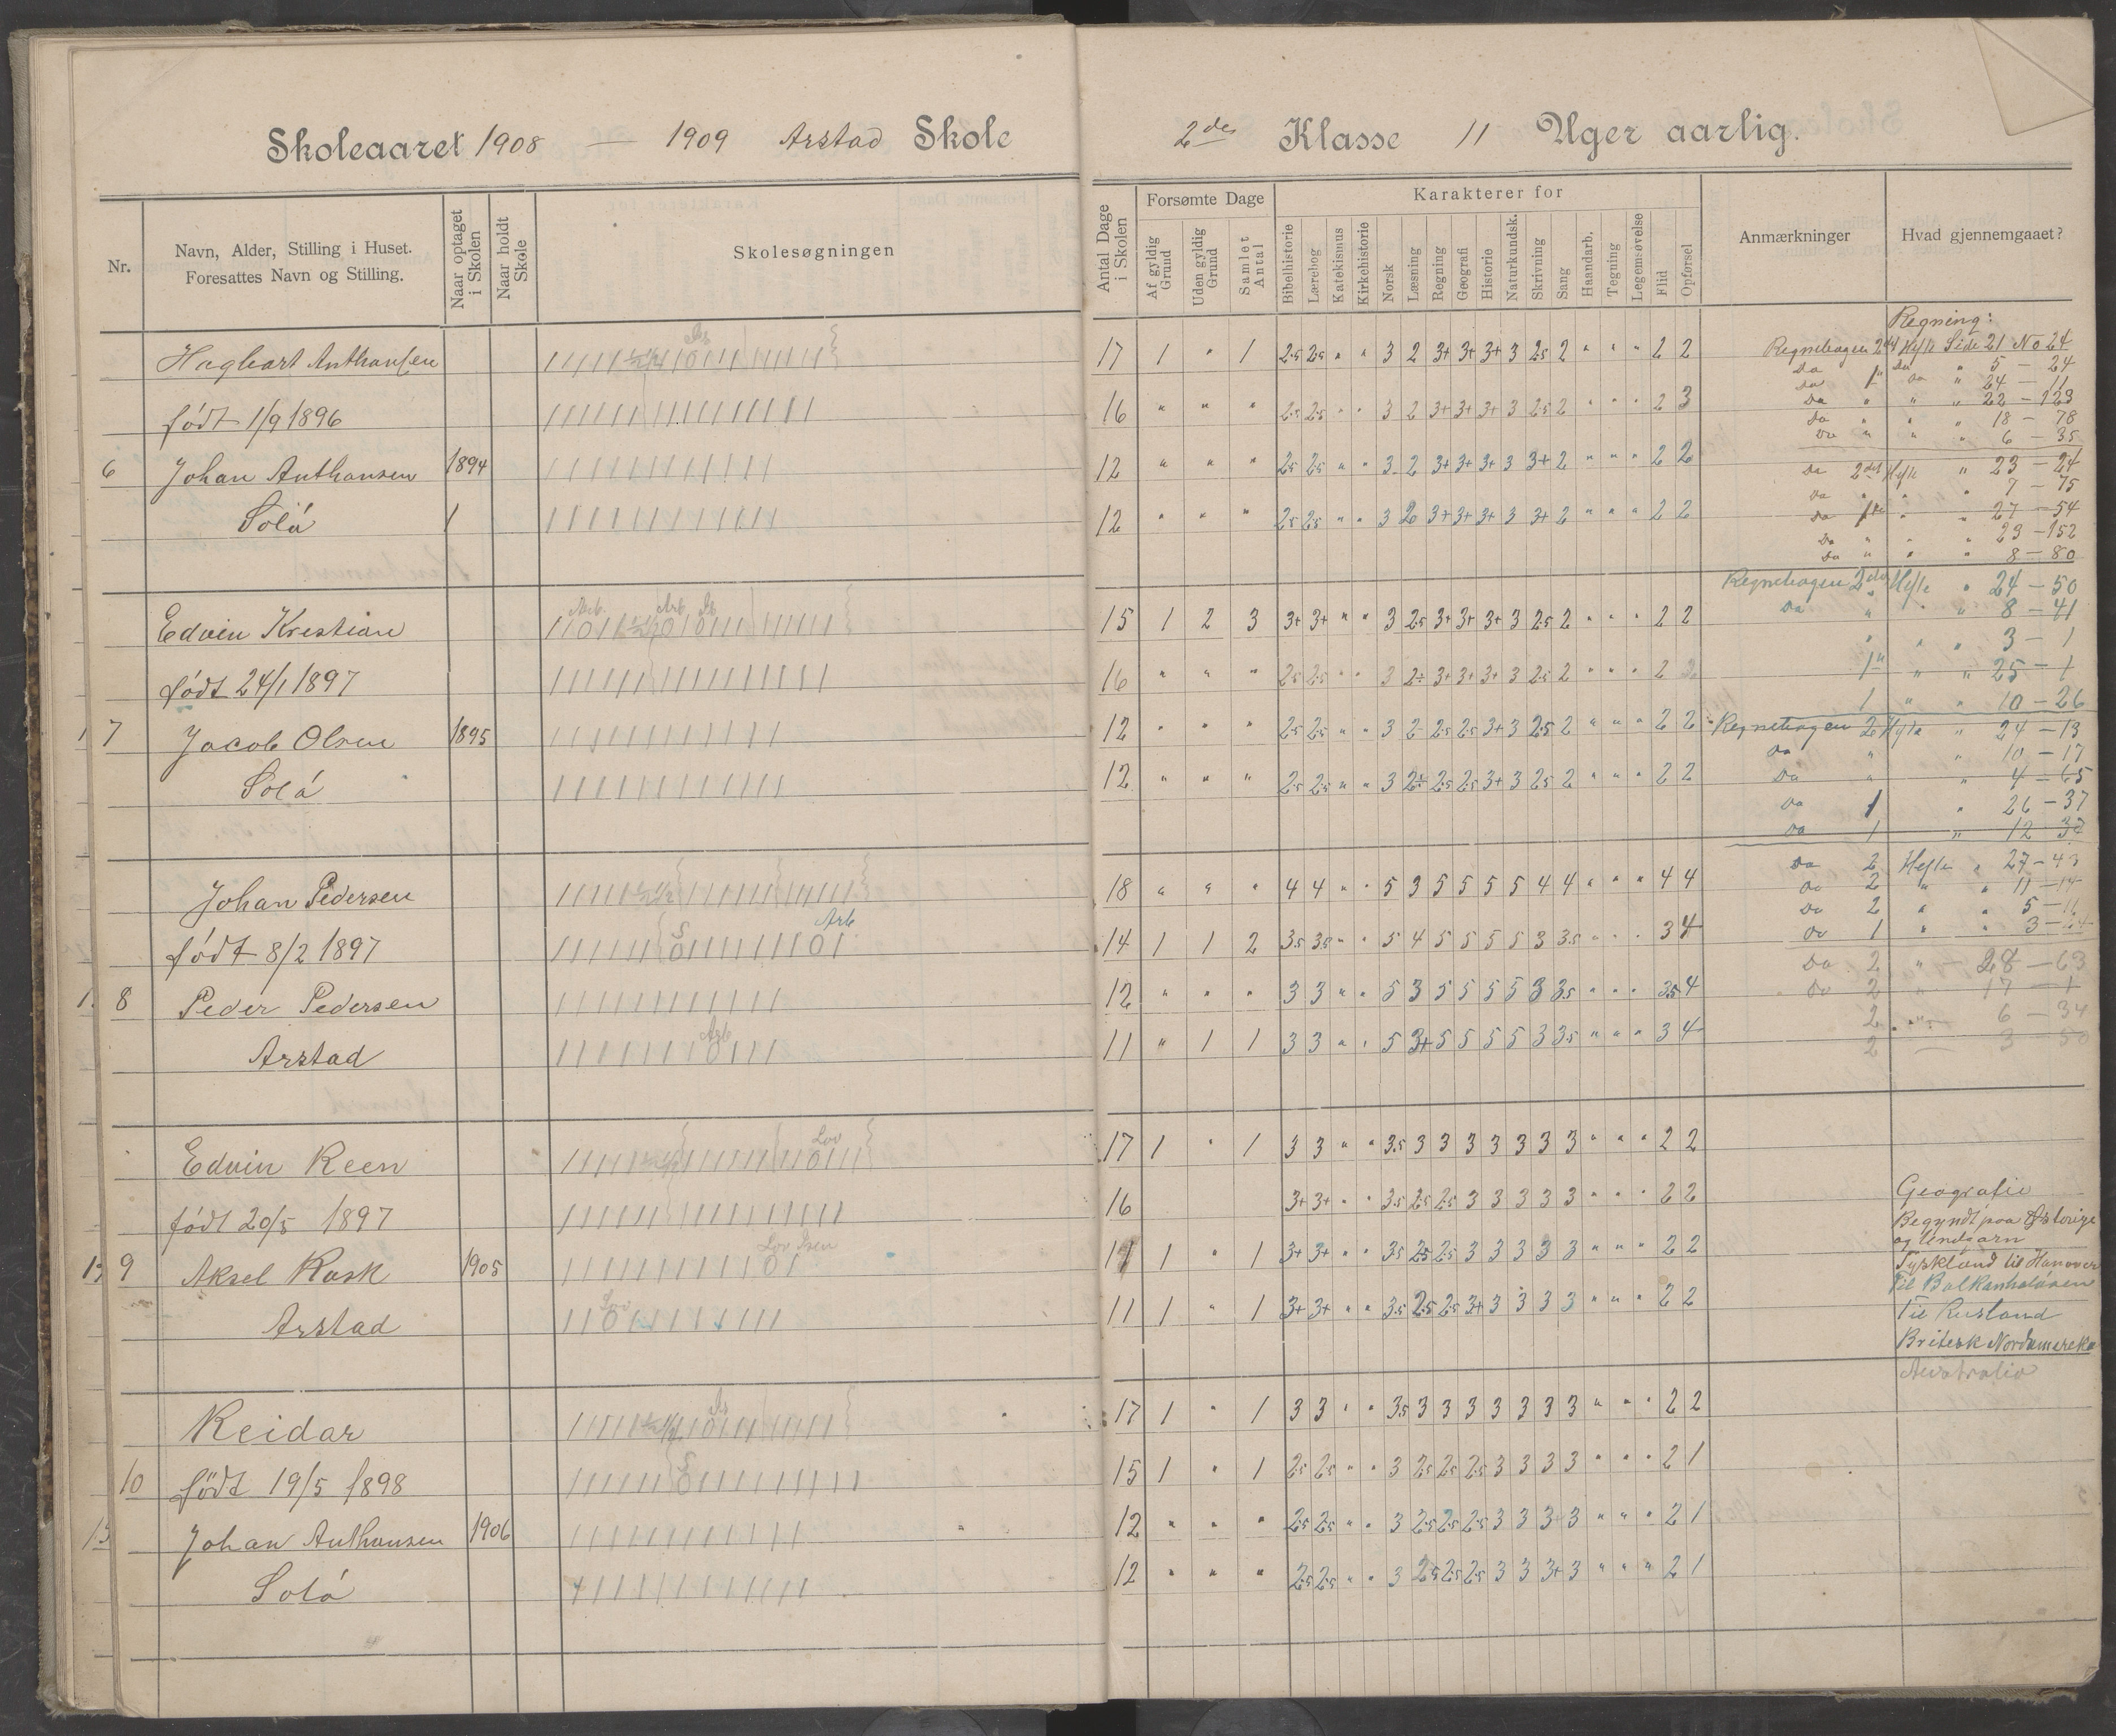 Skoleaaret 1908 — 1909 Arstad Skole
2den Klasse 11 Uger aarlig.
Nr.
Navn, Alder, Stilling i Huset.
Foresattes Navn og Stilling.
Naar optaget i Skolen
Naar holdt Skole
Skolesøgningen
Antal Dage i Skolen
Forsømte Dage
Af gyldig Grund
Uden gyldig Grund
Samlet Antal
Karakterer for
Bibelhistorie
Lærebog
Katekismus
Kirkehistorie
Norsk
Læsning
Regning
Geografi
Historie
Naturkundsk.
Skrivning
Sang
Haandarb.
Tegning
Legemsøvelse
Flid
Opførsel
Anmærkninger
Hvad gjennemgaaet?
Hagbart Anthonsen 17 1 " 1 2.5 2.5 " " 3 2 3+ 3+ 3+ 3 2.5 2 " " " 2 2
født 1/9 1896 16 " " " 2.5 2.5 " " 3 2 3+ 3+ 3+ 3 2.5 2 " " " 2 3
6 Johan Anthonsen 1894 12 " " " 2.5 2.5 " " 3 2 3+ 3+ 3+ 3 3+ 2 " " " 2 2
Solå 12 " " " 2.5 2.5 " " 3 2 3+ 3+ 3+ 3 3+ 2 " " " 2 2
Edvin Kristian 15 1 2 3 3+ 3+ " " 3 2.5 3+ 3+ 3+ 3 2.5 2 " " " 2 2
født 24/1 1897 16 " " " 2.5 2.5 " " 3 2÷ 3+ 3+ 3+ 3 2.5 2 " " " 2
7 Jacob Olsen 1895 12 " " " 2.5 2.5 " " 3 2 2.5 2.5 3+ 3 2.5 2 " " " 2 2
Solå 12 " " " 2.5 2.5 " " 3 2÷ 2.5 2.5 3+ 3 2.5 2 " " " 2 2
Johan Pedersen 18 " " " 4 4 " " 5 3 5 5 5 5 4 4 " " " 4 4
født 8/2 1897 Arb 14 1 1 2 3.5 3.5 " " 5 4 5 5 5 5 3 3.5 " " " 3 4
8 Peder Pedersen 12 " " " 3 3 " " 5 3 5 5 5 5 3 3.5 " " " 3.5 4
Arstad Arb 11 " 1 1 3 3 " " 5 3+ 5 5 5 5 3 3.5 " " " 3 4
Edvin Reen Lov 17 1 " 1 3 3 " " 3.5 3 3 3 3 3 3 3 " " " 2 2
født 20/5 1897 16 3+ 3+ " " 3.5 2.5 2.5 3 3 3 3 3 " " " 2 2
9 Aksel Rask 1905 Lov 11 1 " 1 3+ 3+ " " 3.5 2.5 2.5 3 3 3 3 3 " " " 2 2
Arstad Lov 11 1 " 1 3+ 3+ " " 3.5 2.5 2.5 3+ 3 3 3 3 " " " 2 2
Reidar 17 1 " 1 3 3 " " 3.5 3 3 3 3 3 3 3 " " " 2 2
10 født 19/5 1898 15 1 " 1 2.5 2.5 " " 3 2.5 2.5 2.5 3 3 3 3 " " " 2 1
Johan Anthonsen 1906 12 " " " 2.5 2.5 " " 3 2.5 2.5 2.5 3 3 3+ 3 " " " 2 1
Solå 12 " " " 2.5 2.5 " " 3 2.5 2.5 2.5 3 3 3+ 3 " " " 2 1
Regning:
Regnebogen 2det Hefte Side 21 No 24
Da " Da " 5 — 24
Da 1 " Da " 24 — 11
Da " " " 22 — 123
Da " " " 18 — 78
Da " " " 6 — 35
Da 2det Hefte " 23 — 24
Da " " " 7 — 75
Da 1ste " " 27 — 54
Da " " " 23 — 152
Da " " " 8 — 80
Regnebogen 2det Hefte " 24 — 50
Da " " " 8 — 41
" " " 3 — 1
1 " " " 25 — 1
1 " " 10 — 26
Regnebogen 2 Hefte " 24 — 13
Da " " 10 — 17
Da " " 4 — 65
Da 1 " 26 — 37
Da 1 " 12 — 32
Da 2 Hefte " 27 — 43
Da 2 " " 11 — 14
Da 2 " " 5 — 11
Da 1 " " 3 — 24
Da 2 " — 28 — 63
Da 2 " 17 — 1
2 " 6 — 34
2 — 3 — 50
Geografie
Begyndt paa Østerige
og Undgarn
Tyskland til Hanover
Til Balkanhaløen
Til Rusland
Britesk Nordamereka
Australia